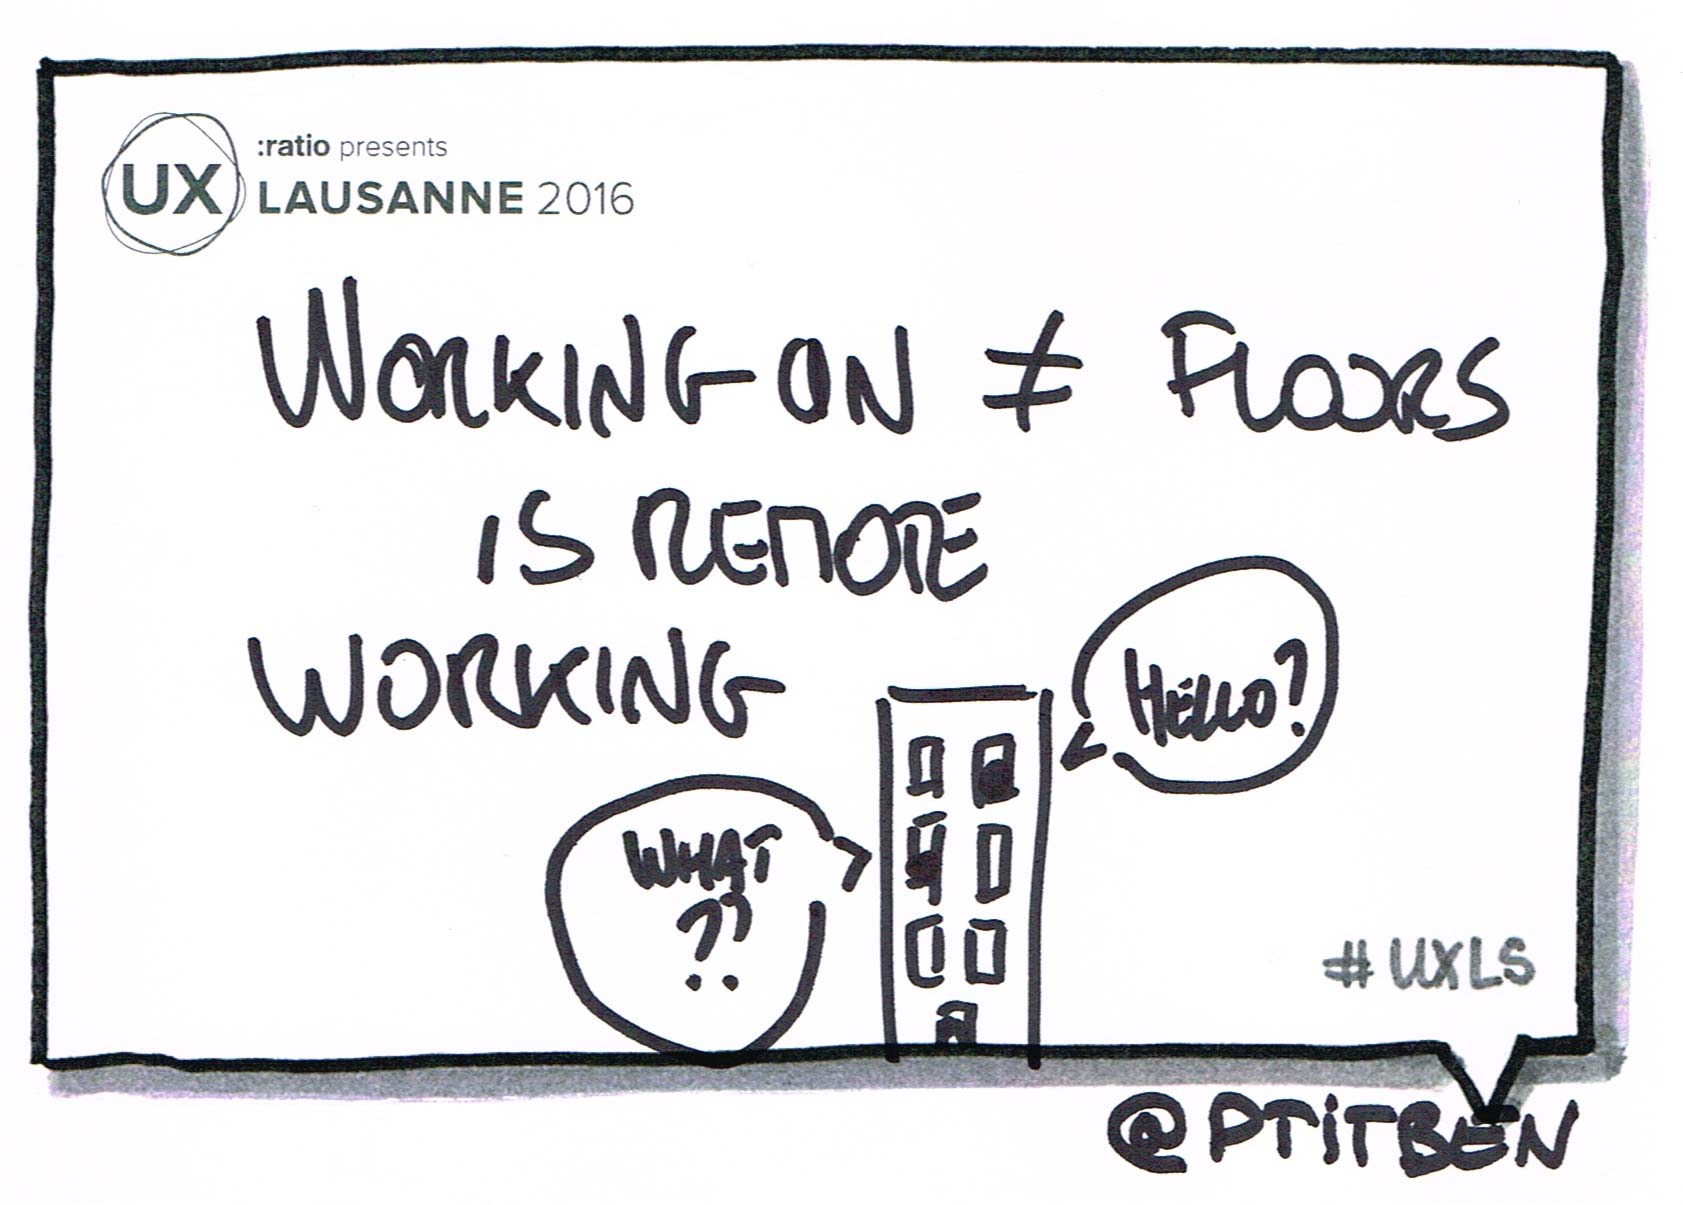 :ratio presents
UX LAUSANNE 2016
WORKING ON ≠ FLOORS
IS REMOTE
WORKING
HELLO?
WHAT
??
#UXLS
@PTITBEN